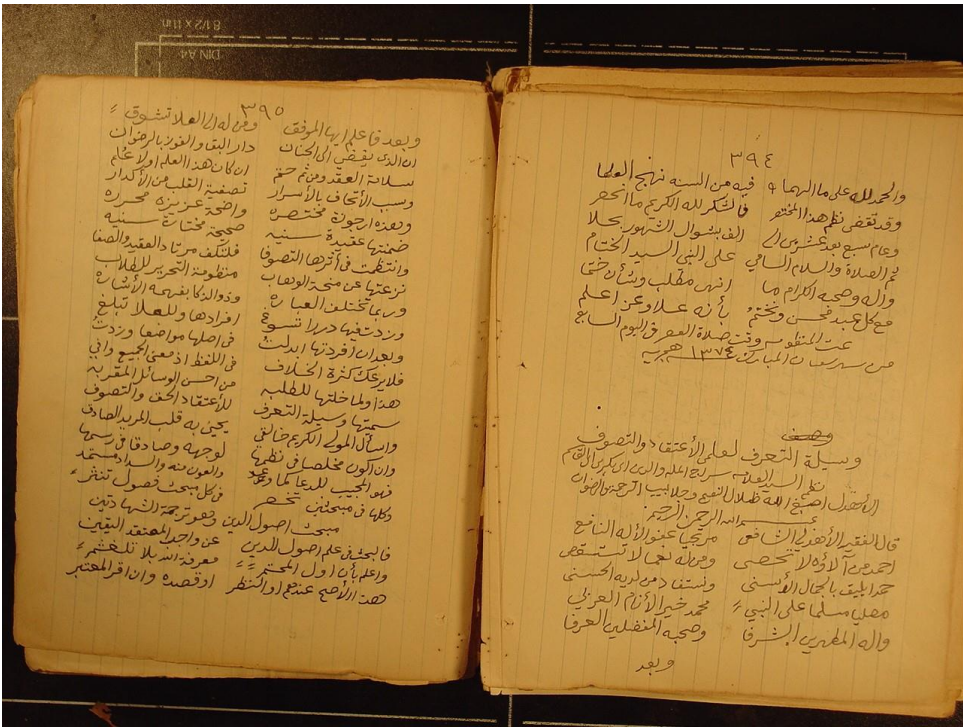 ٣٩٤
والحمد لله على ما الهما فيه من السنه نهج العلما
وقد تقضى نظم هذا المختصر فالشكر لله الكريم ما انحصر
وعام سبع بعد عشرين الف بشوال الشهور
ثم الصلاة والسلام السامي على النبي السيد الختام
واله وصحبه الكرام ما انهى مطلب وشأن ختما
مع كل عبد محسن ونختم بأنه علا وعز اعلم
تمت المنظومه وقت صلاة العصر في اليوم السابع
من شهر المبارك ١٣٧٤ هجريه
وسيلة التعرف لعلمي الأعتقاد والتصوف
نظم السيد العلامه سراج المله والدين ابي بكر بن ابي القاسم
الأهدل اصبغ الله ظلال النعيم وجلابيب الرحمة والرضوان
بسم الله الرحمن الرحيم
قال الفقير الأهدلي الشافعي مرتجيا عفو الأله النافع
احمد من آلاؤه لا تحصى ومن له نعما لا تستقصى
حمدا يليق بالجمال الأسنى ونستفاد من لديه الحسنى
مصليا مسلما على النبي محمد خير الأنام العربي
واله المطهرين الشرفا وصحبه المفضلين العرفا
وبعد
٣٩٥
وبعد فاعلم ايها الموفق ومن له الى العلا تشوق
ان الذي يفضي الى الجنان دار البقا والفوز بالرضوان
سلامة العقد ومن ثم حتم ان كان هذا العلم اولا علم
وسبب الأتحاف بالأسرار تصفية القلب من الأكدار
وهذه ارجوزة مختصره واضحة عزيزة محرره
ضمنتها عقيدة سنيه صحيحة مختارة سنيه
وانتظمت في اثرها التصوفا فلتكف مرتاد العقيد والصفا
نزعتها من منحة الوهاب منظومة التحرير للطلاب
وربما تختلف العباره وذو الذكا يفهمه الأشاره
وزدت فيها دررا تسوغ افرادها وللعلا تبلغ
وبعد ان افردتها ابدلت في اصلها مواضعا وزدت
فلا يرعك كثرة الخلاف في اللفظ اذ معنى الجميع وافي
هذا ولما خلتها للطلبه من احسن الوسائل المقربه
سميتها وسيلة التعرف للأعتقاد الحق والتصوف
واسأل المولى الكريم خالقي يحيى به قلب المريد الصادق
وان اكون مخلصا في نظمها لوجهه وصادقا في رسمها
فهو المجيب للدعا والعون منه والسداد مستمد
وكلها في مبحثين تنحصر في كل مبحث فصول تنتثر
مبحث اصول الدين وهو ترجمة الشهادتين
فالبحث في علم اصول الدين عن واجب المعتقد اليقين
واعلم بأن اول المحتم معرفة الله بلا تلعثم
هذا الأصح عندهم او النظر او قصده وان اقر المعتبر